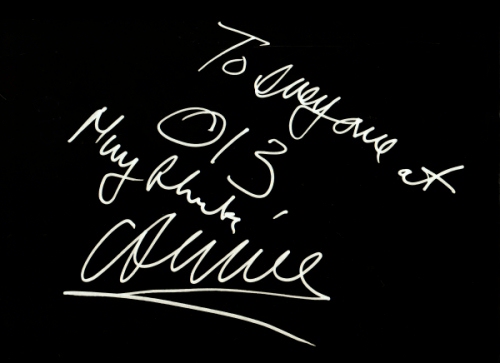 To everyone at
013
Many Thanks